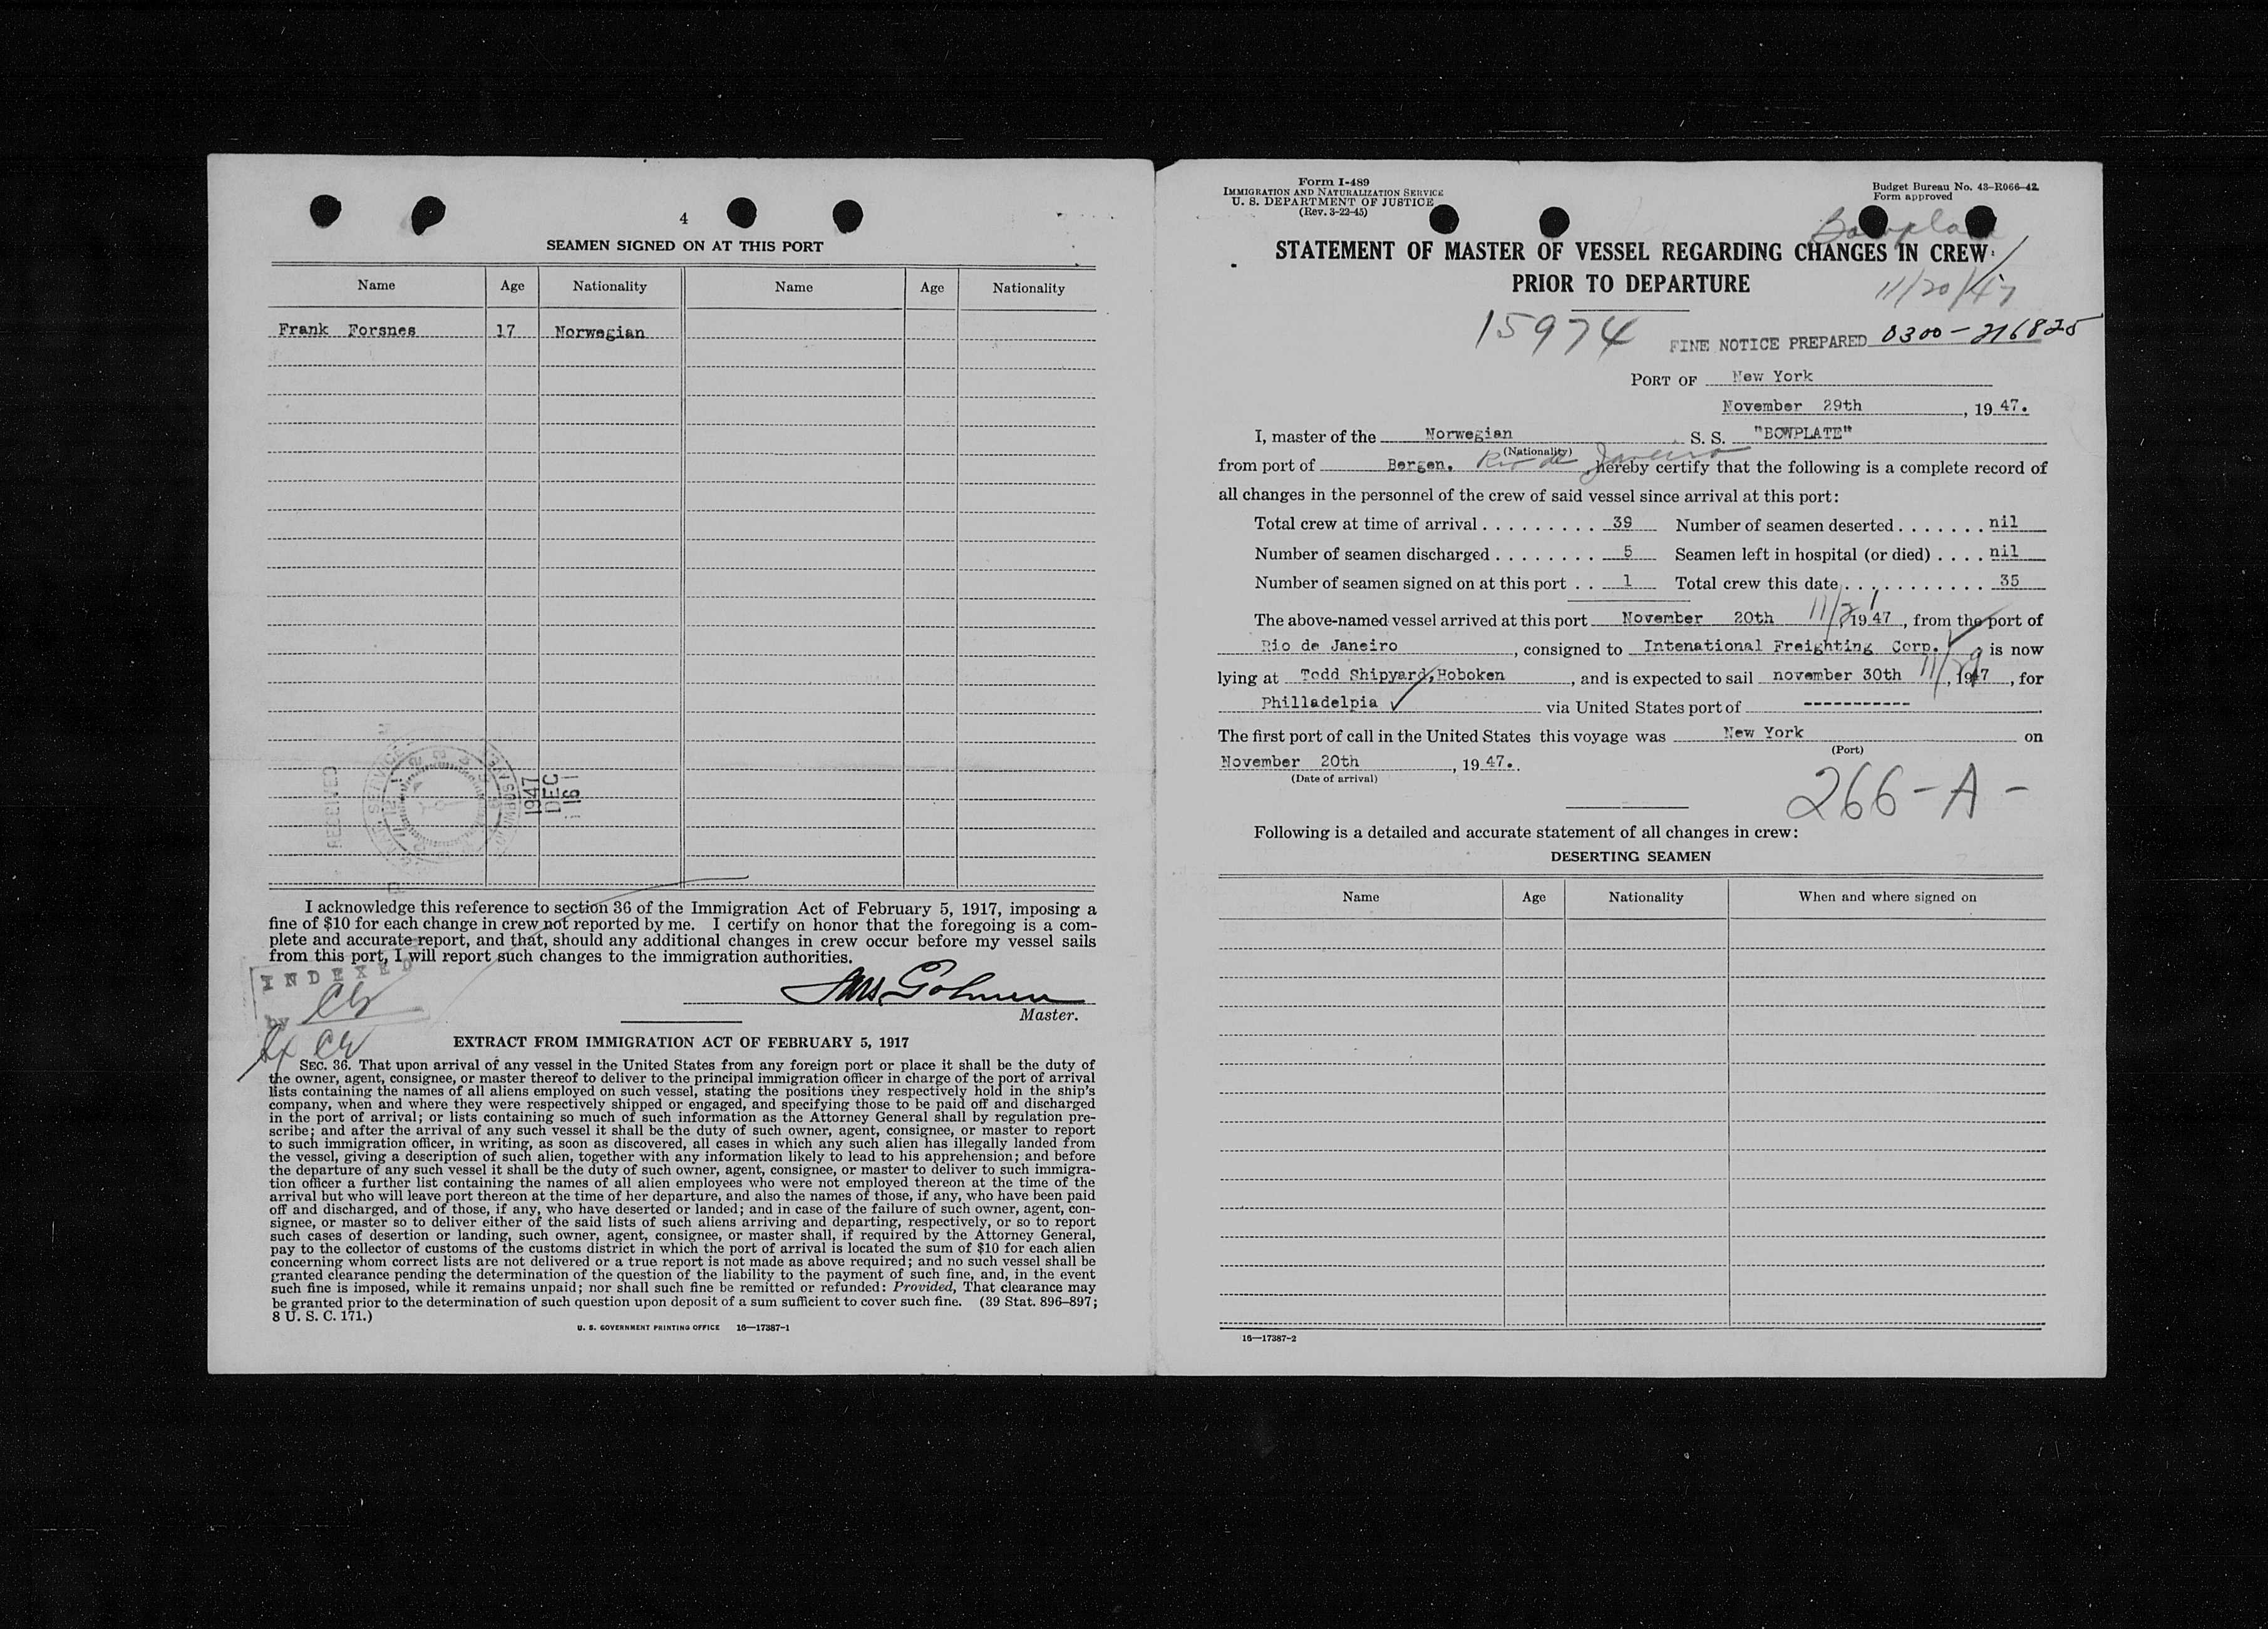 4
SEAMEN SIGNED ON AT THIS PORT
Name Age Nationality Name Age Nationality
Frank Forsnes 17 Norwegian
RECEIVED
1947
DEC
16
I acknowledge this reference to section 36 of the Immigration Act of February 5, 1917, imposing a
fine of $10 for each change in crew not reported by me. I certify on honor that the foregoing is a com-
plete and accurate report, and that, should any additional changes in crew occur before my vessel sails
from this port, I will report such changes to the immigration authorities.
INDEXED
by
Master.
EXTRACT FROM IMMIGRATION ACT OF FEBRUARY 5, 1917
SEC. 36. That upon arrival of any vessel in the United States from any foreign port or place it shall be the duty of
the owner, agent, consignee, or master thereof to deliver to the principal immigration officer in charge of the port of arrival
lists containing the names of all aliens employed on such vessel, stating the positions they respectively hold in the ship's
company, when and where they were respectively shipped or engaged, and specifying those to be paid off and discharged
in the port of arrival; or lists containing so much of such information as the Attorney General shall by regulation pre-
scribe; and after the arrival of any such vessel it shall be the duty of such owner, agent, consignee, or master to report
to such immigration officer, in writing, as soon as discovered, all cases in which any such alien has illegally landed from
the vessel, giving a description of such alien, together with any information likely to lead to his apprehension; and before
the departure of any such vessel it shall be the duty of such owner, agent, consignee, or master to deliver to such immigra-
tion officer a further list containing the names of all alien employees who were not employed thereon at the time of the
arrival but who will leave port thereon at the time of her departure, and also the names of those, if any, who have been paid
off and discharged, and of those, if any, who have deserted or landed; and in case of the failure of such owner, agent, con-
signee, or master so to deliver either of the said lists of such aliens arriving and departing, respectively, or so to report
such cases of desertion or landing, such owner, agent, consignee, or master shall, if required by the Attorney General,
pay to the collector of customs of the customs district in which the port of arrival is located the sum of $10 for each alien
concerning whom correct lists are not delivered or a true report is not made as above required; and no such vessel shall be
granted clearance pending the determination of the question of the liability to the payment of such fine, and, in the event
such fine is imposed, while it remains unpaid; nor shall such fine be remitted or refunded: Provided, That clearance may
be granted prior to the determination of such question upon deposit of a sum sufficient to cover such fine. (39 Stat. 896–897;
8 U. S. C. 171.)
U. S. GOVERNMENT PRINTING OFFICE 16—17387-1
Form I-489
IMMIGRATION AND NATURALIZATION SERVICE
U. S. DEPARTMENT OF JUSTICE
(Rev. 3-22-45)
Budget Bureau No. 43-R066-42
Form approved
STATEMENT OF MASTER OF VESSEL REGARDING CHANGES IN CREW
PRIOR TO DEPARTURE
11/20/47
15974
FINE NOTICE PREPARED 0300-216825
PORT OF New York
November 29th, 1947.
I, master of the Norwegian S. S. "BOWPLATE"
(Nationality)
from port of Bergen. Rio de Janeiro, hereby certify that the following is a complete record of
all changes in the personnel of the crew of said vessel since arrival at this port:
Total crew at time of arrival . . . . . . . . . 39 Number of seamen deserted . . . . . . . nil
Number of seamen discharged . . . . . . . . 5 Seamen left in hospital (or died) . . . . nil
Number of seamen signed on at this port . . 1 Total crew this date . . . . . . . . . . . . 35
The above-named vessel arrived at this port November 20th 1947, from the port of
Rio de Janeiro, consigned to Intenational Freighting Corp. is now
lying at Todd Shipyard, Hoboken, and is expected to sail november 30th 11/29, 1947, for
Philladelpia via United States port of -----------
The first port of call in the United States this voyage was New York on
(Port)
November 20th, 1947.
(Date of arrival)
266-A-
Following is a detailed and accurate statement of all changes in crew:
DESERTING SEAMEN
Name Age Nationality When and where signed on
16—17387-2